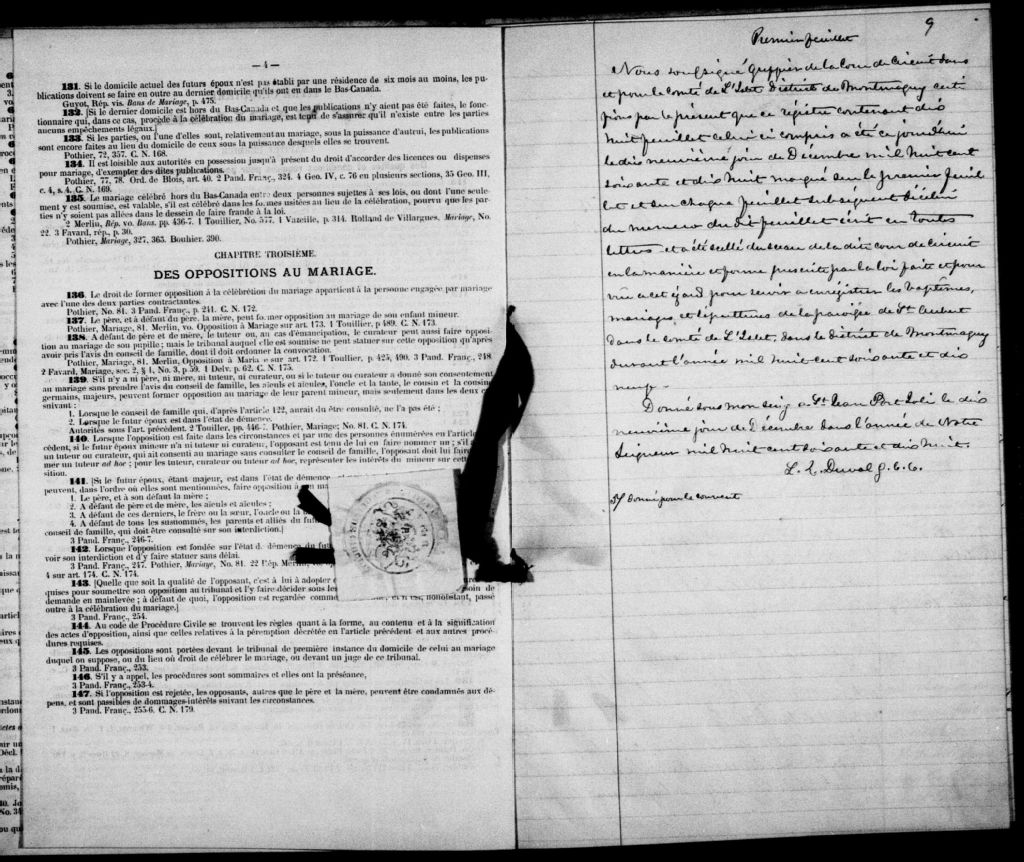 — 4 —
131. Si le domicile actuel des futurs époux n'est pas établi par une résidence de six mois au moins, les pu-
blications doivent se faire en outre au dernier domicile qu'ils ont eu dans le Bas-Canada.
Guyot, Rép. vis. Bans de Mariage, p. 475.
132. [Si le dernier domicile est hors du Bas-Canada et que les publications n'y aient pas été faites, le fonc-
tionnaire qui, dans ce cas, procède à la célébration du mariage, est tenu de s'assurer qu'il n'existe entre les parties
aucuns empêchements légaux.]
133. Si les parties, ou l'une d'elles sont, relativement au mariage, sous la puissance d'autrui, les publications
sont encore faites au lieu du domicile de ceux sous la puissance desquels elles se trouvent.
Pothier, 72, 357. C. N. 168.
134. Il est loisible aux autorités en possession jusqu'à présent du droit d'accorder des licences ou dispenses
pour mariage, d'exempter des dites publications.
Pothier, 77, 78. Ord. de Blois, art. 40. 2 Pand. Franç., 324. 4 Geo. IV, c. 76 en plusieurs sections, 35 Geo. III,
c. 4, s. 4. C. N. 169.
135. Le mariage célébré hors du Bas-Canada entre deux personnes sujettes à ses lois, ou dont l'une seule-
ment y est soumise, est valable, s'il est célébré dans les formes usitées au lieu de la célébration, pourvu que les par-
ties n'y soient pas allées dans le dessein de faire fraude à la loi.
2 Merlin, Rép. vo. Bans. pp. 436-7. 1 Touillier, No. 577. 1 Vazeille, p. 314. Rolland de Villargues, Mariage, No.
22. 3 Favard, rép., p. 30.
Pothier, Mariage, 327, 363. Bouhier. 390.
CHAPITRE TROISIÈME.
DES OPPOSITIONS AU MARIAGE.
136. Le droit de former opposition à la célébration du mariage appartient à la personne engagée par mariage
avec l'une des deux parties contractantes.
Pothier, No. 81. 3 Pand. Franç., p. 241. C. N. 172.
137. Le père, et à défaut du père, la mère, peut former opposition au mariage de son enfant mineur.
Pothier, Mariage, 81. Merlin, vo. Opposition à Mariage sur art. 173. 1 Touillier, p. 489. C. N. 173.
138. A défaut de père et de mère, le tuteur ou, au cas d'émancipation, le curateur peut aussi faire opposi-
tion au mariage de son pupille; mais le tribunal auquel elle est soumise ne peut statuer sur cette opposition qu'après
avoir pris l'avis du conseil de famille, dont il doit ordonner la convocation.
Pothier, Mariage, 81. Merlin, Opposition à Maria e sur art. 172. 1 Toullier, p. 425, 490. 3 Pand. Franç., 248
2 Favard, Mariage, sec. 2, § 1, No. 3, p 59. 1 Delv. p. 62. C. N. 175.
139. S'il n'y a ni père, ni mère, ni tuteur, ni curateur, ou si le tuteur ou curateur a donné son consentement
au mariage sans prendre l'avis du conseil de famille, les aïeuls et aïeules, l'oncle et la tante, le cousin et la cousine
germains, majeurs, peuvent former opposition au mariage de leur parent mineur, mais seulement dans les deux cas
suivant :
1. Lorsque le conseil de famille qui, d'après l'article 122, aurait du être consulté, ne l'a pas été ;
2. Lorsque le futur époux est dans l'état de démence.
Autorités sous l'art. précédent. 2 Touiller, pp. 446-7. Pothier, Mariage; No. 81. C. N. 174.
140. Lorsque l'opposition est faite dans les circonstances et par une des personnes énumérées en l'article
cédent, si le futur époux mineur n'a ni tuteur ni curateur, l'opposant est tenu de lui en faire nommer un ; s'il a
un tuteur ou curateur, qui ait consenti au mariage sans consulter le conseil de famille, l'opposant doit lui faire
mer un tuteur ad hoc ; pour les tuteur, curateur ou tuteur ad hoc, représenter les intérêts du mineur sur cette
sition.
141. [Si le futur époux, étant majeur, est dans l'état de démence
peuvent, dans l'ordre où elles sont mentionnées, faire opposition à
1. Le père, et à son défaut la mère ;
2. A défaut de père et de mère, les aïeuls et aïeules ;
3. A défaut de ces derniers, le frère ou la sœur, l'oncle ou la
4. A défaut de tous les susnommés, les parents et alliés du
conseil de famille, qui doit être consulté sur son interdiction.]
3 Pand. Franç., 246-7.
142. Lorsque l'opposition est fondée sur l'état de démence du
voir son interdiction et d'y faire statuer sans délai.
3 Pand. Franç., 247. Pothier, Mariage, No. 81. 22 Rép.
4 sur art. 174. C. N. 174.
143. [Quelle que soit la qualité de l'opposant, c'est à lui à adopter
quises pour soumettre son opposition au tribunal et l'y faire décider sous les
demande en mainlevée ; à défaut de quoi, l'opposition est regardée comme
outre à la célébration du mariage.]
3 Pand. Franç., 254.
144. Au code de Procédure Civile se trouvent les règles quant à la forme, au contenu et à la signification
des actes d'opposition, ainsi que celles relatives à la péremption décrétée en l'article précédent et aux autres procé-
dures requises.
145. Les oppositions sont portées devant le tribunal de première instance du domicile de celui au mariage
duquel on s'oppose, ou du lieu où droit de célébrer le mariage, ou devant un juge de ce tribunal.
3 Pand. Franç., 253.
146. S'il y a appel, les procédures sont sommaires et elles ont la préséance,
3 Pand. Franç., 253-4.
147. Si l'opposition est rejetée, les opposants, autres que le père et la mère, peuvent être condamnés aux dé-
pens, et sont passibles de dommages-intérêts suivant les circonstances.
3 Pand. Franç., 255-6. C. N. 179.
9
Premier feuillet
Nous soussigné Greffier de la Cour de Circuit dans
et pour le Comté de L'Islet District de Montmagny certi
fions par le présent que ce régistre contenant dix
huit feuillet celui ci compris a été ce jourd'hui
le dix neuvième jour de Décembre mil huit cent
soixante et dix huit marqué sur le premier feuil
let et sur chaque feuillet subséquent
du numero du dit feuillet écrit en toutes
lettres et a été scellé du sceau de la dite cour de circuit
en la manière et forme prescrite par la loi faite et pour
vue a cet égard pour servir a enregistrer les baptêmes,
mariages, et sépultures de la paroisse de St. Aubert
dans le comté de L'Islet, dans le district de Montmagny
durant l'année mil huit cent soixante et dix
neuf.
Donné sous mon seing a St. Jean Port Joli le dix
neuvième jour de Décembre dans l'année de Notre
Seigneur mil huit cent soixante et dix huit.
L. C. Duval G. C. C.
donné pour le couvent